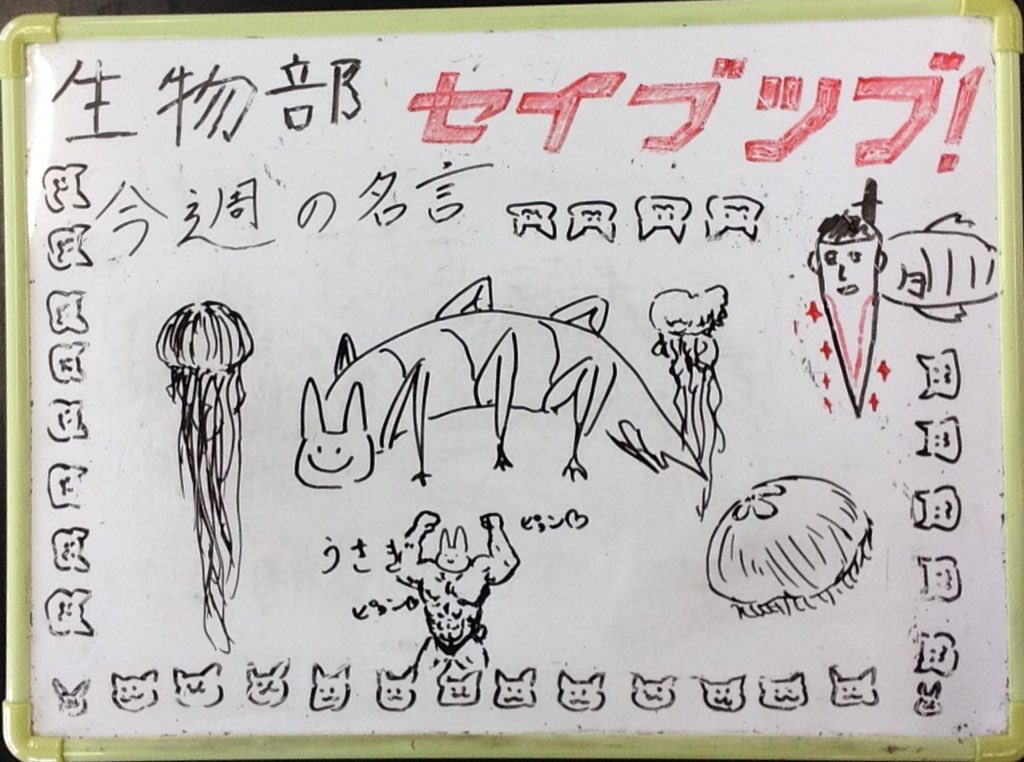 生物部 セイブツブ!
今週の名言
月
うさぎ
ピョン♡
ピョン♡